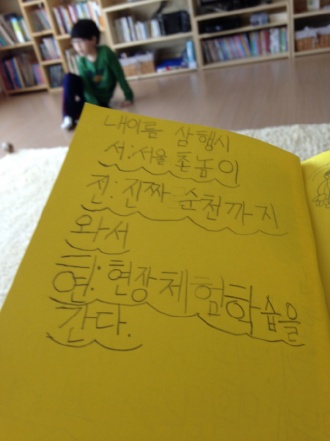 내이름 삼행시
서:서울 촌놈이
진:진짜 순천까지
와서
현:현장체험학습을
간다.